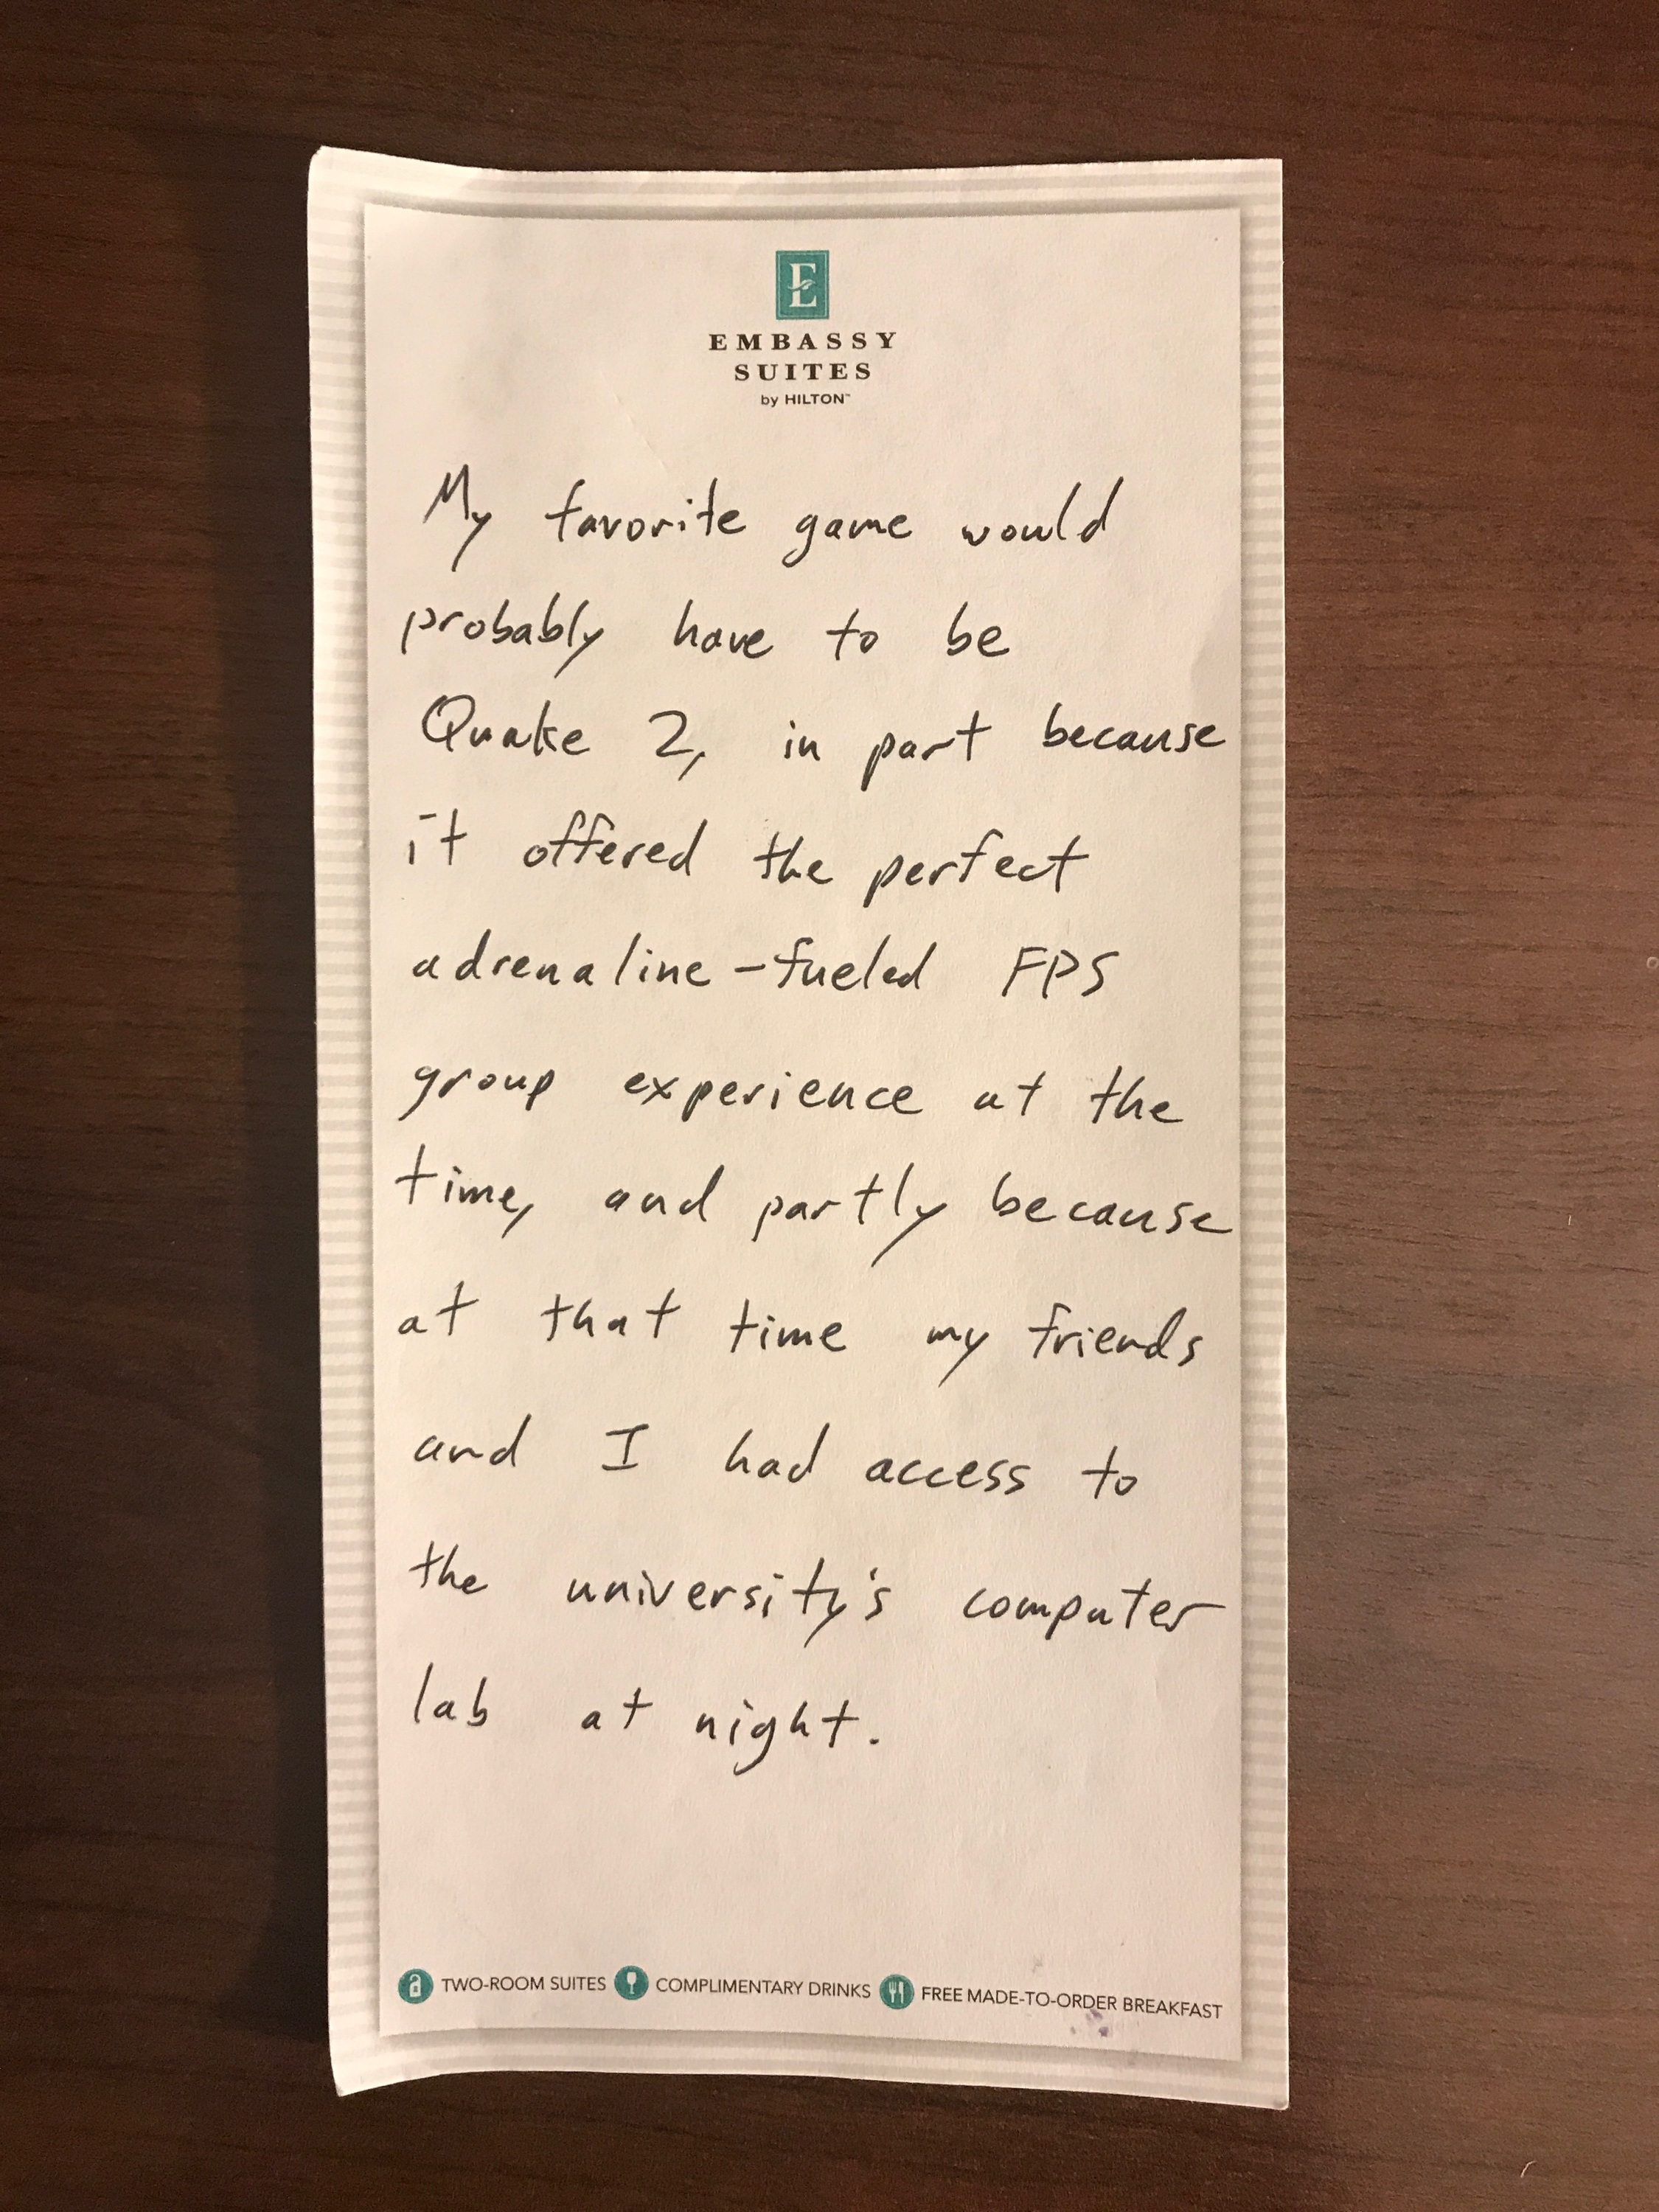 E
EMBASSY
SUITES
by HILTON™
My favorite game would
probably have to be
Quake 2, in part because
it offered the perfect
adrenaline-fueled FPS
group experience at the
time, and partly because
at that time my friends
and I had access to
the university's computer
lab at night.
TWO-ROOM SUITES COMPLIMENTARY DRINKS FREE MADE-TO-ORDER BREAKFAST